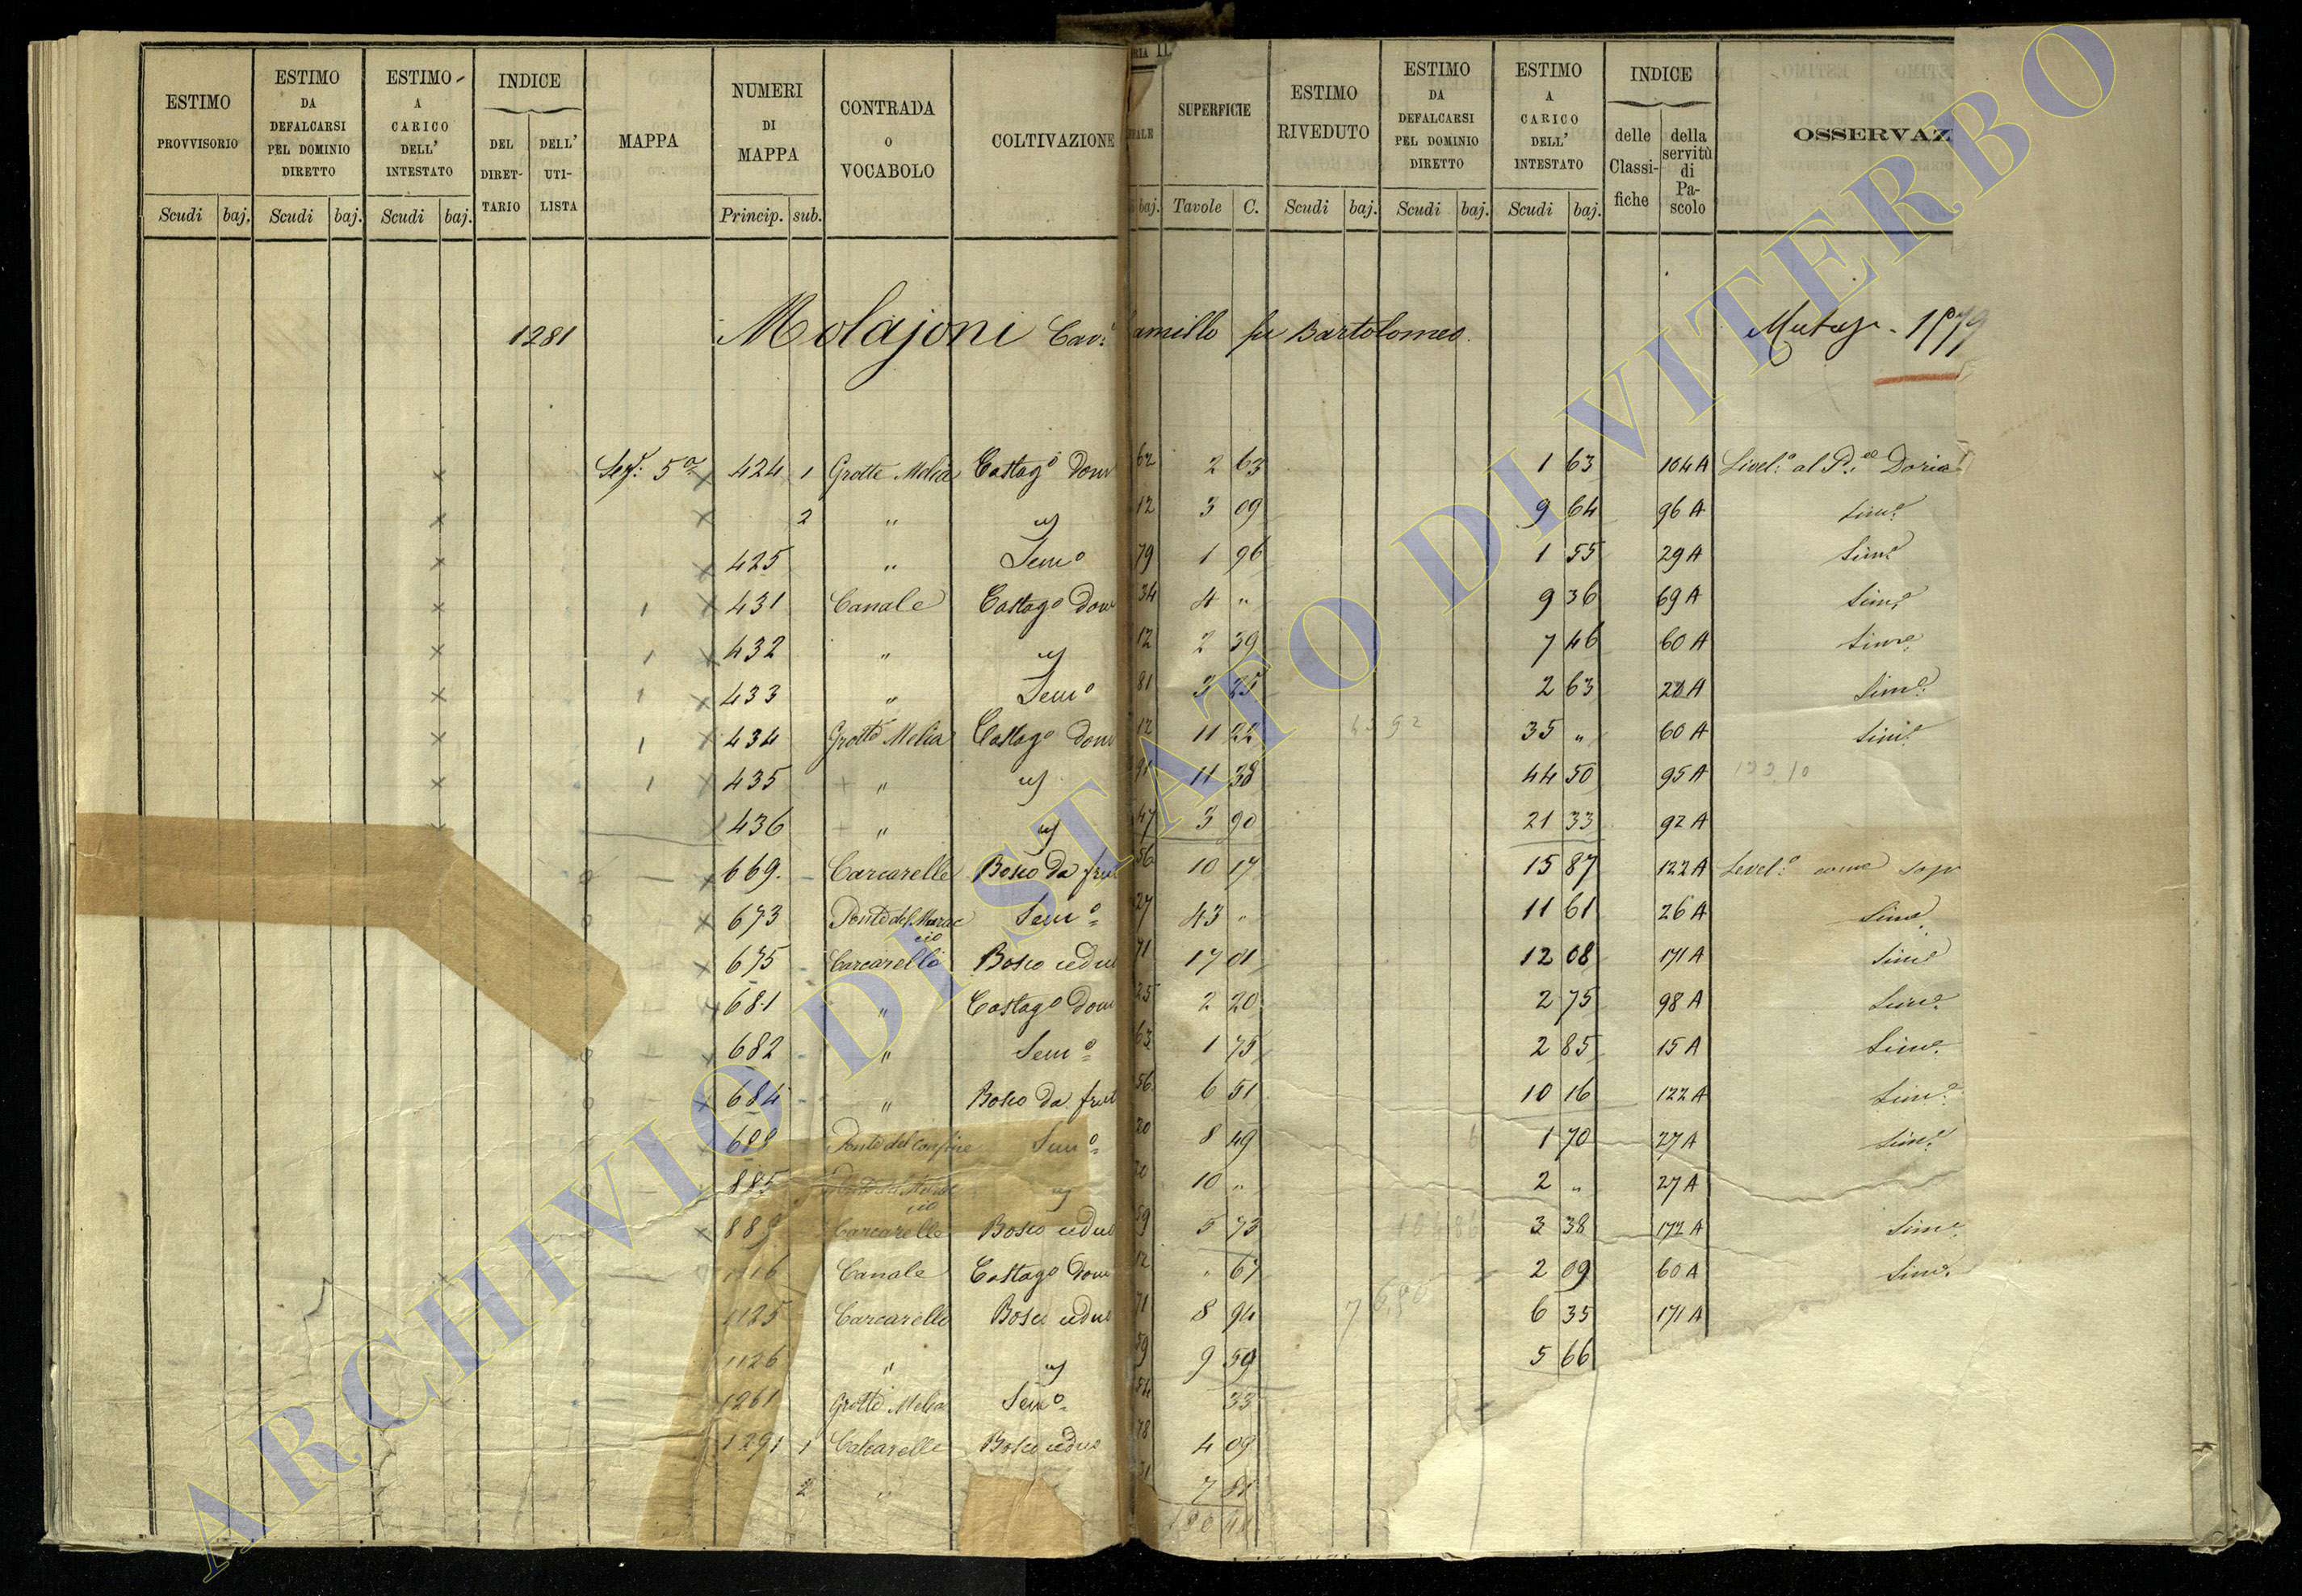 ESTIMO PROVVISORIO
ESTIMO DA DEFALCARSI PEL DOMINIO DIRETTO
ESTIMO A CARICO DELL' INTESTATO
INDICE
DEL DIRETTARIO
DELL' UTILISTA
MAPPA
NUMERI DI MAPPA
CONTRADA O VOCABOLO
COLTIVAZIONE
SUPERFICIE
ESTIMO RIVEDUTO
ESTIMO DA DEFALCARSI PEL DOMINIO DIRETTO
ESTIMO A CARICO DELL' INTESTATO
INDICE
delle Classifiche
della servitù di Pascolo
OSSERVAZ
Scudi baj. Scudi baj. Scudi baj. Princip. sub. baj. Tavole C. Scudi baj. Scudi baj. Scudi baj.
1281 Molajoni Cav: amillo fu Bartolomeo.
5a 424 1 Grotte Melia Castago Dom 62 2 63 1 63 104A Livel:o al Doria
2 " 12 3 09 9 64 96 A Sime
425 " Semo 79 1 96 1 55 29 A Sime
431 Canale Castago Dom 34 4 " 9 36 69 A Sime
432 " 12 2 39 7 46 60 A Sime
433 " Semo 81 3 25 2 63 A Sime
434 Grotte Melia Castago Dom 12 11 22 35 " 60 A Sime
435 " 11 38 44 50 95 A
436 " 47 3 90 21 33 92 A
669. Carcarelle Bosco da frut 56 10 17 15 87 122 A Level:o come sopr
673 Ponte del Semo 27 43 " 11 61 26 A Sime
675 Carcarelle Bosco cedu 71 17 01 12 08 171 A Sime
681 " Castago Dom 25 2 20 2 75 98 A Sime
682 " Semo 63 1 75 2 85 15 A Sime
684 " Bosco da frut 56 6 51 10 16 122 A Sime
688 Ponte del Confine Semo 20 8 49 1 70 27 A Sime
885 10 " 2 " 27 A
Carcarelle Bosco cedu 59 5 73 3 38 172 A Sime
1116 Canale Castago Dom 12 " 67 2 09 60 A Sime
1125 Carcarelle Bosco cedu 71 8 94 6 35 171 A
1126 " 59 9 59 5 66
1261 Grotte Melia Semo 54 33
1291 1 Calcarelle Bosco cedu 78 4 09
2 "
ARCHIVIO DI STATO DI VITERBO